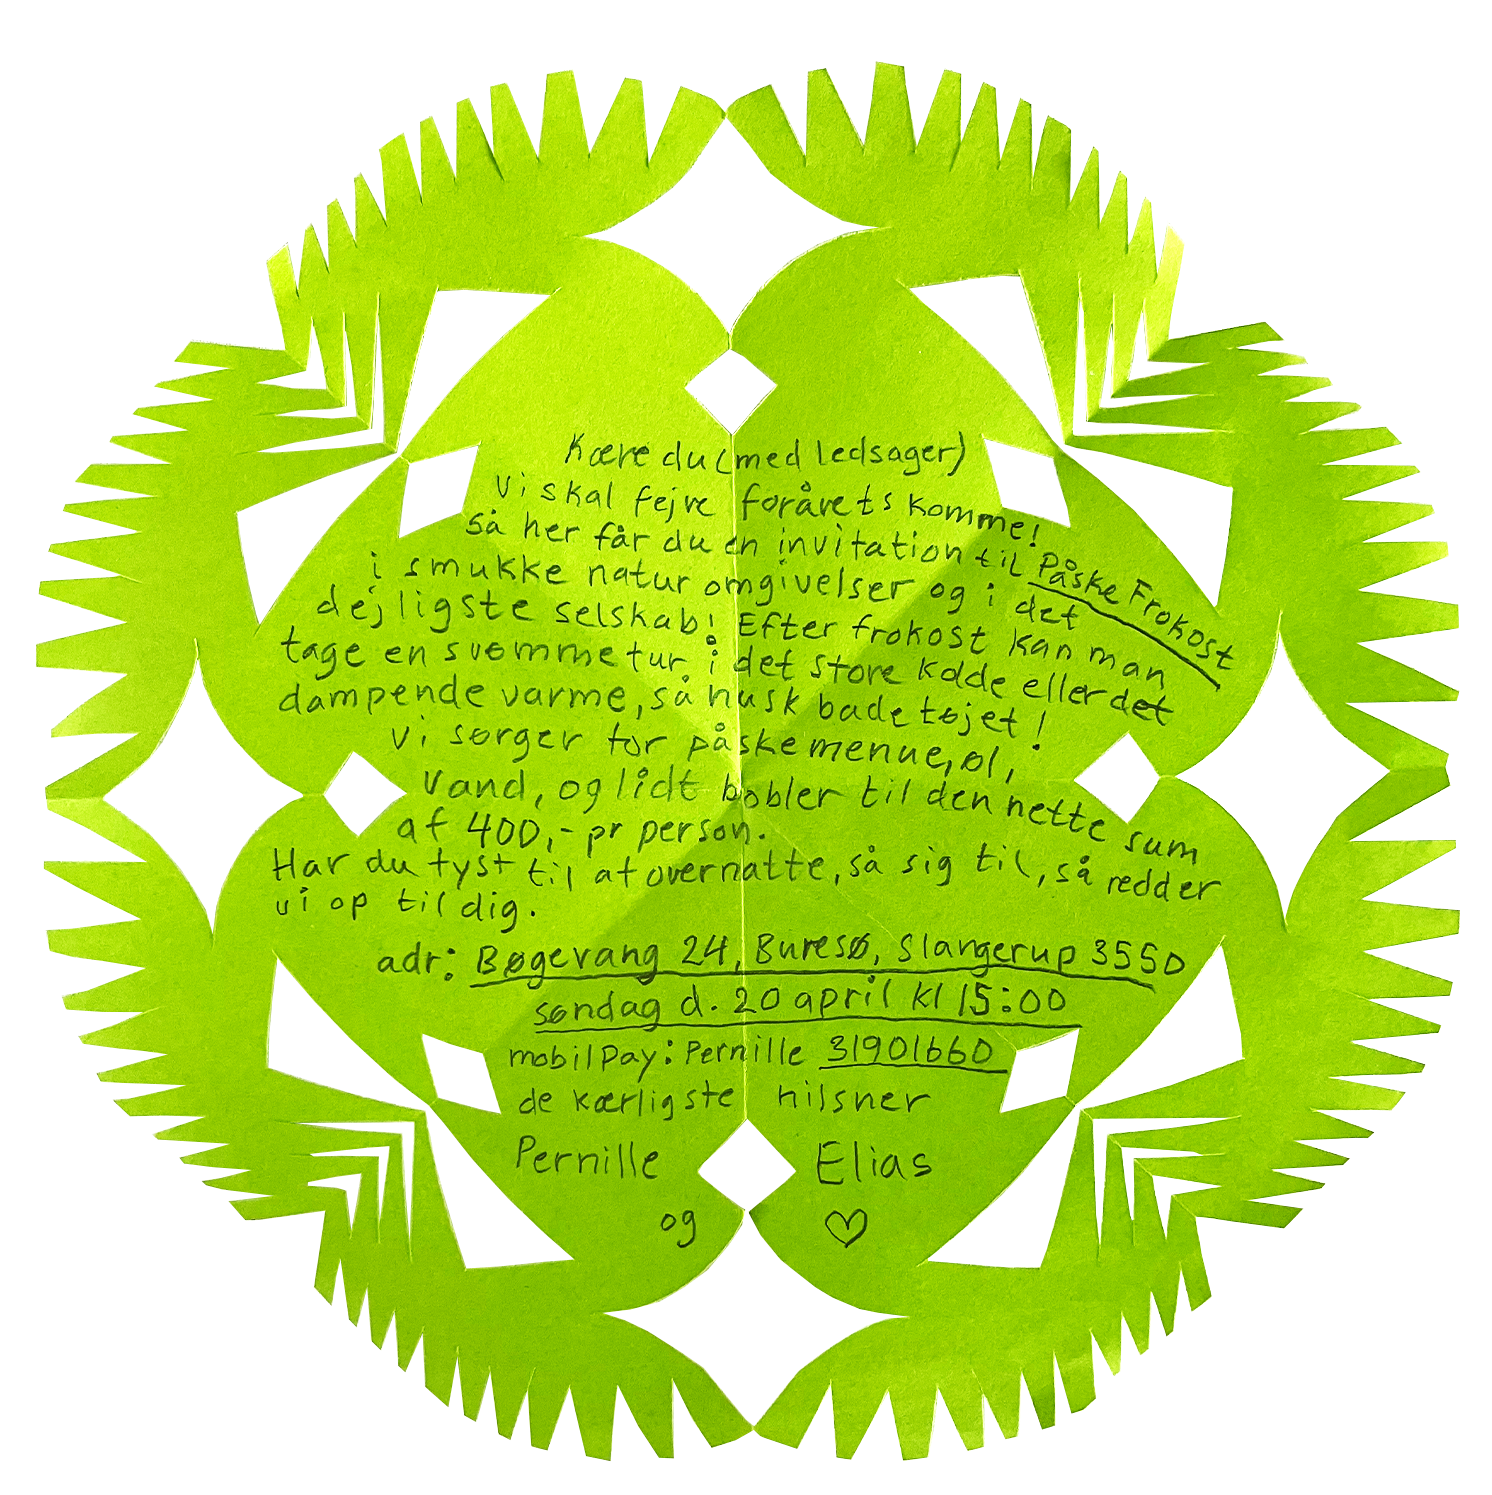 Kære du (med ledsager)
Vi skal fejre forårets komme!
Så her får du en invitation til Påske Frokost
i smukke natur omgivelser og i det
dejligste selskab! Efter frokost kan man
tage en svømmetur i det store kolde eller det
dampende varme, så husk badetøjet!
Vi sørger for påskemenue, øl,
Vand, og lidt bobler til den nette sum
af 400,- pr person.
Har du lyst til at overnatte, så sig til, så redder
vi op til dig.
adr: Bøgevang 24, Buresø, Slangerup 3550
søndag d. 20 april kl 15:00
mobilPay: Pernille 31901660
de kærligste hilsner
Pernille Elias
og ♡